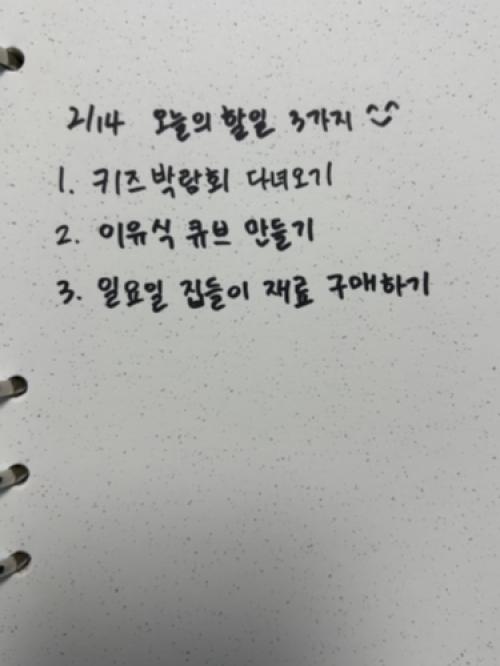 2/14 오늘의 할일 3가지 ^^
1. 키즈박람회 다녀오기
2. 이유식 큐브 만들기
3. 일요일 집들이 재료 구매하기